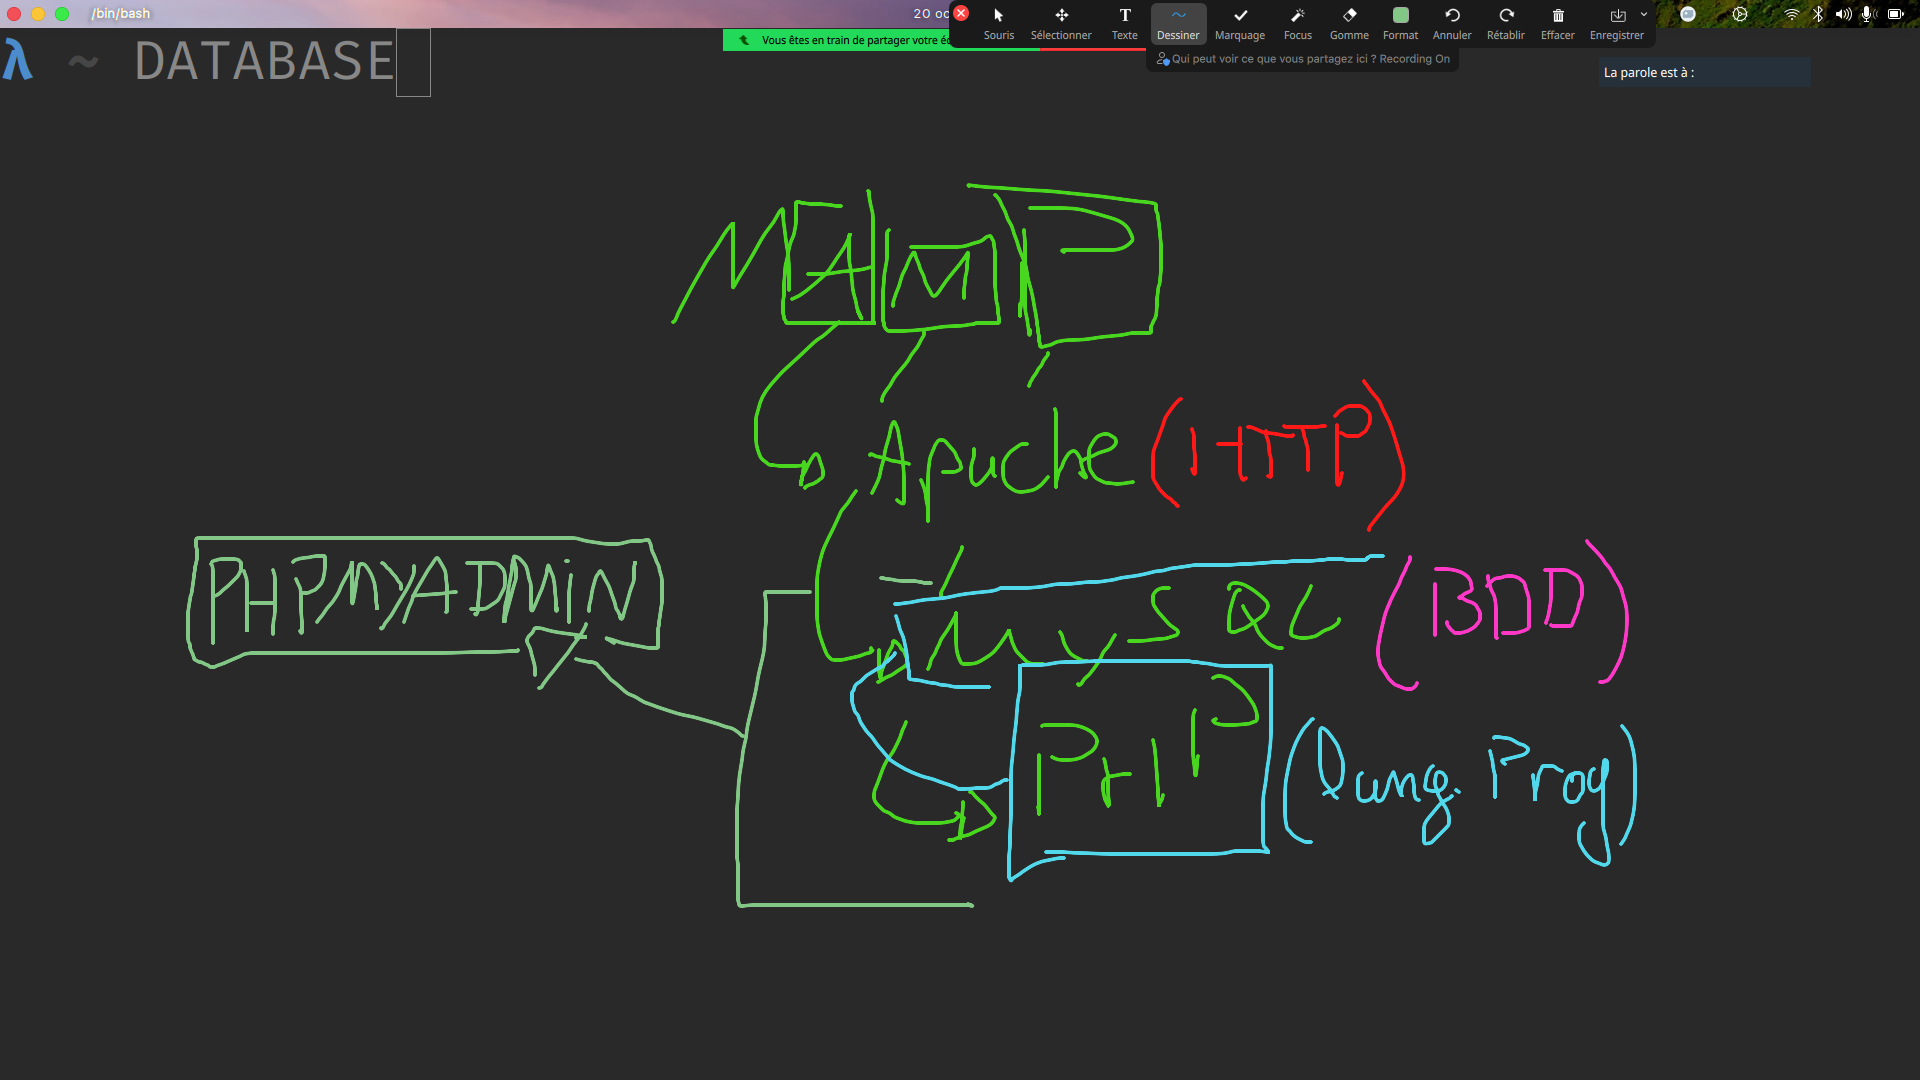 /bin/bash
20 oc
Souris Sélectionner Texte Dessiner Marquage Focus Gomme Format Annuler Rétablir Effacer Enregistrer
Vous êtes en train de partager votre éc
Qui peut voir ce que vous partagez ici ? Recording On
La parole est à :
λ ~ DATABASE
MAMP
Apache (HTTP)
PHPMYADMiN
MySQL (BDD)
PHP (Lang. Prog)